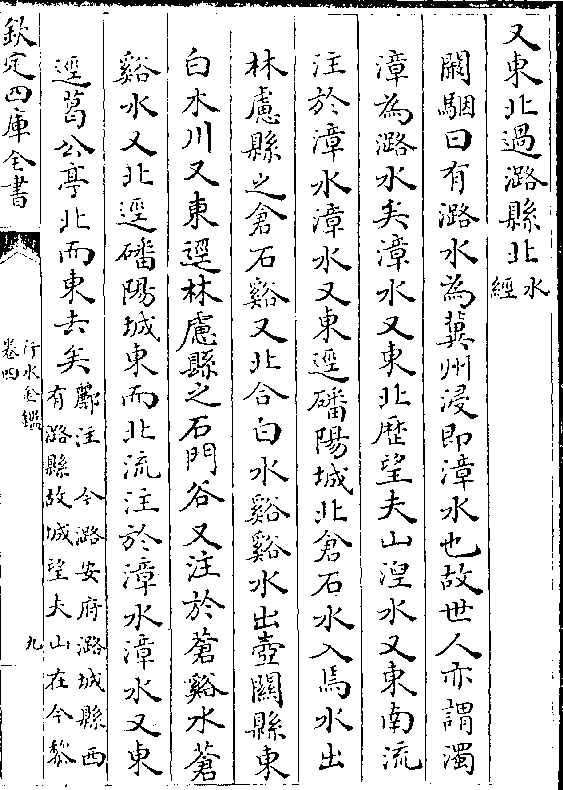 又東北過潞縣北水經
闞駰曰有潞水為冀州浸即漳水也故世人亦謂濁
漳為潞水矣漳水又東北歷望夫山湼水又東南流
注於漳水漳水又東逕磻陽城北倉石水入焉水出
林慮縣之倉石谿又北合白水谿谿水出壺關縣東
白木川又東逕林慮縣之石門谷又注於蒼谿水蒼
谿水又北逕磻陽城東而北流注於漳水漳水又東
逕葛公亭北而東去矣酈注 今潞安府潞城縣西
有潞縣故城望夫山在今黎
欽定四庫全書
行水金鑑
卷四
九